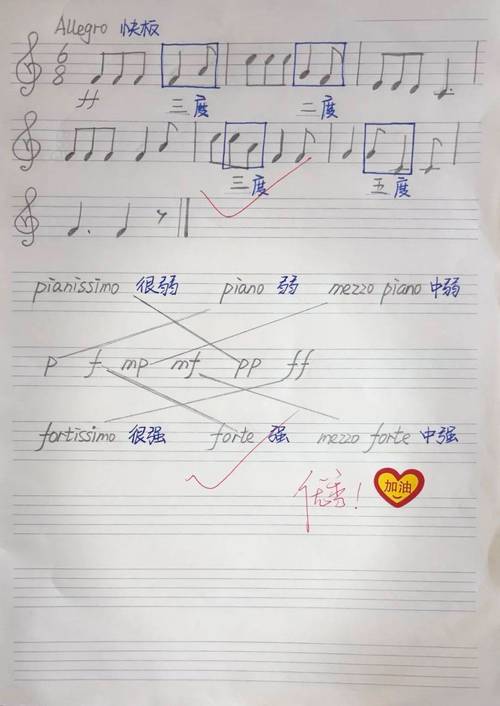 Allegro 快板
6
8
ff 三度 二度
三度 五度
pianissimo 很弱 piano 弱 mezzo piano 中弱
p f mp mf pp ff
fortissimo 很强 forte 强 mezzo forte 中强
优秀! 加油